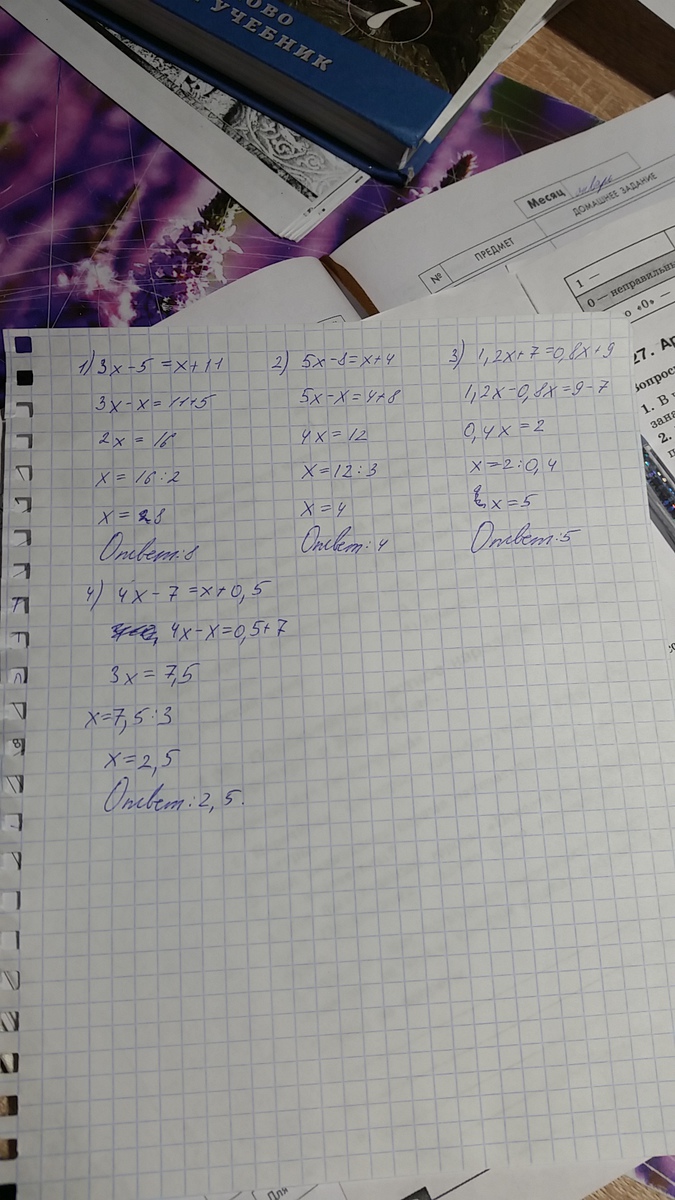 ОВО
УЧЕБНИК
7
Месяц
ДОМАШНЕЕ ЗАДАНИЕ
№
ПРЕДМЕТ
1 —
0 — неправильны
о «0» —
27. А
1. В
2.
1) 3x-5=x+11
3x-x=11+5
2x=16
x=16:2
x=8
Ответ:8
2) 5x-8=x+4
5x-x=4+8
4x=12
x=12:3
x=4
Ответ:4
3) 1,2x+7=0,8x+9
1,2x-0,8x=9-7
0,4x=2
x=2:0,4
x=5
Ответ:5
4) 4x-7=x+0,5
4x-x=0,5+7
3x=7,5
x=7,5:3
x=2,5
Ответ:2,5.
Для